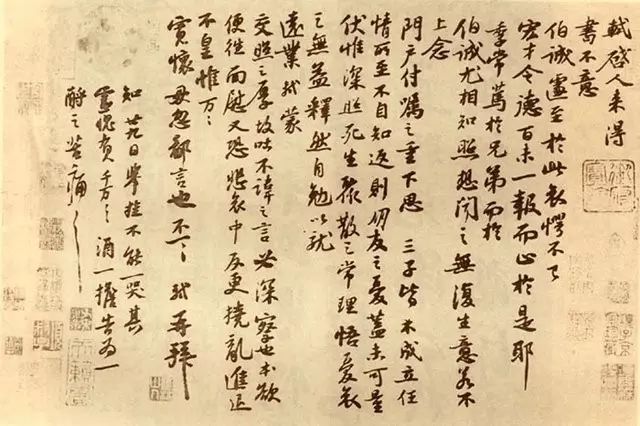 軾啓人來得
書不意
伯誠遽至於此哀愕不已
宏才令德百未一報而止於是耶
季常篤於兄弟而於
伯誠尤相知照想聞之無復生意若不
上念
門户付囑之重下思三子皆未成立任
情所至不自知返則朋友之憂蓋未可量
伏惟深照死生聚散之常理悟憂哀
之無益釋然自勉以就
遠業軾蒙
交照之厚故吐不諱之言必深察也本欲
便往面慰又恐悲哀中反更撓亂進退
不皇惟萬〻
寬懷毋忽鄙言也不一〻軾再拜
知廿九日舉挂不能一哭其
靈愧負千萬〻〻酒一擔告為一
酹之苦痛〻〻